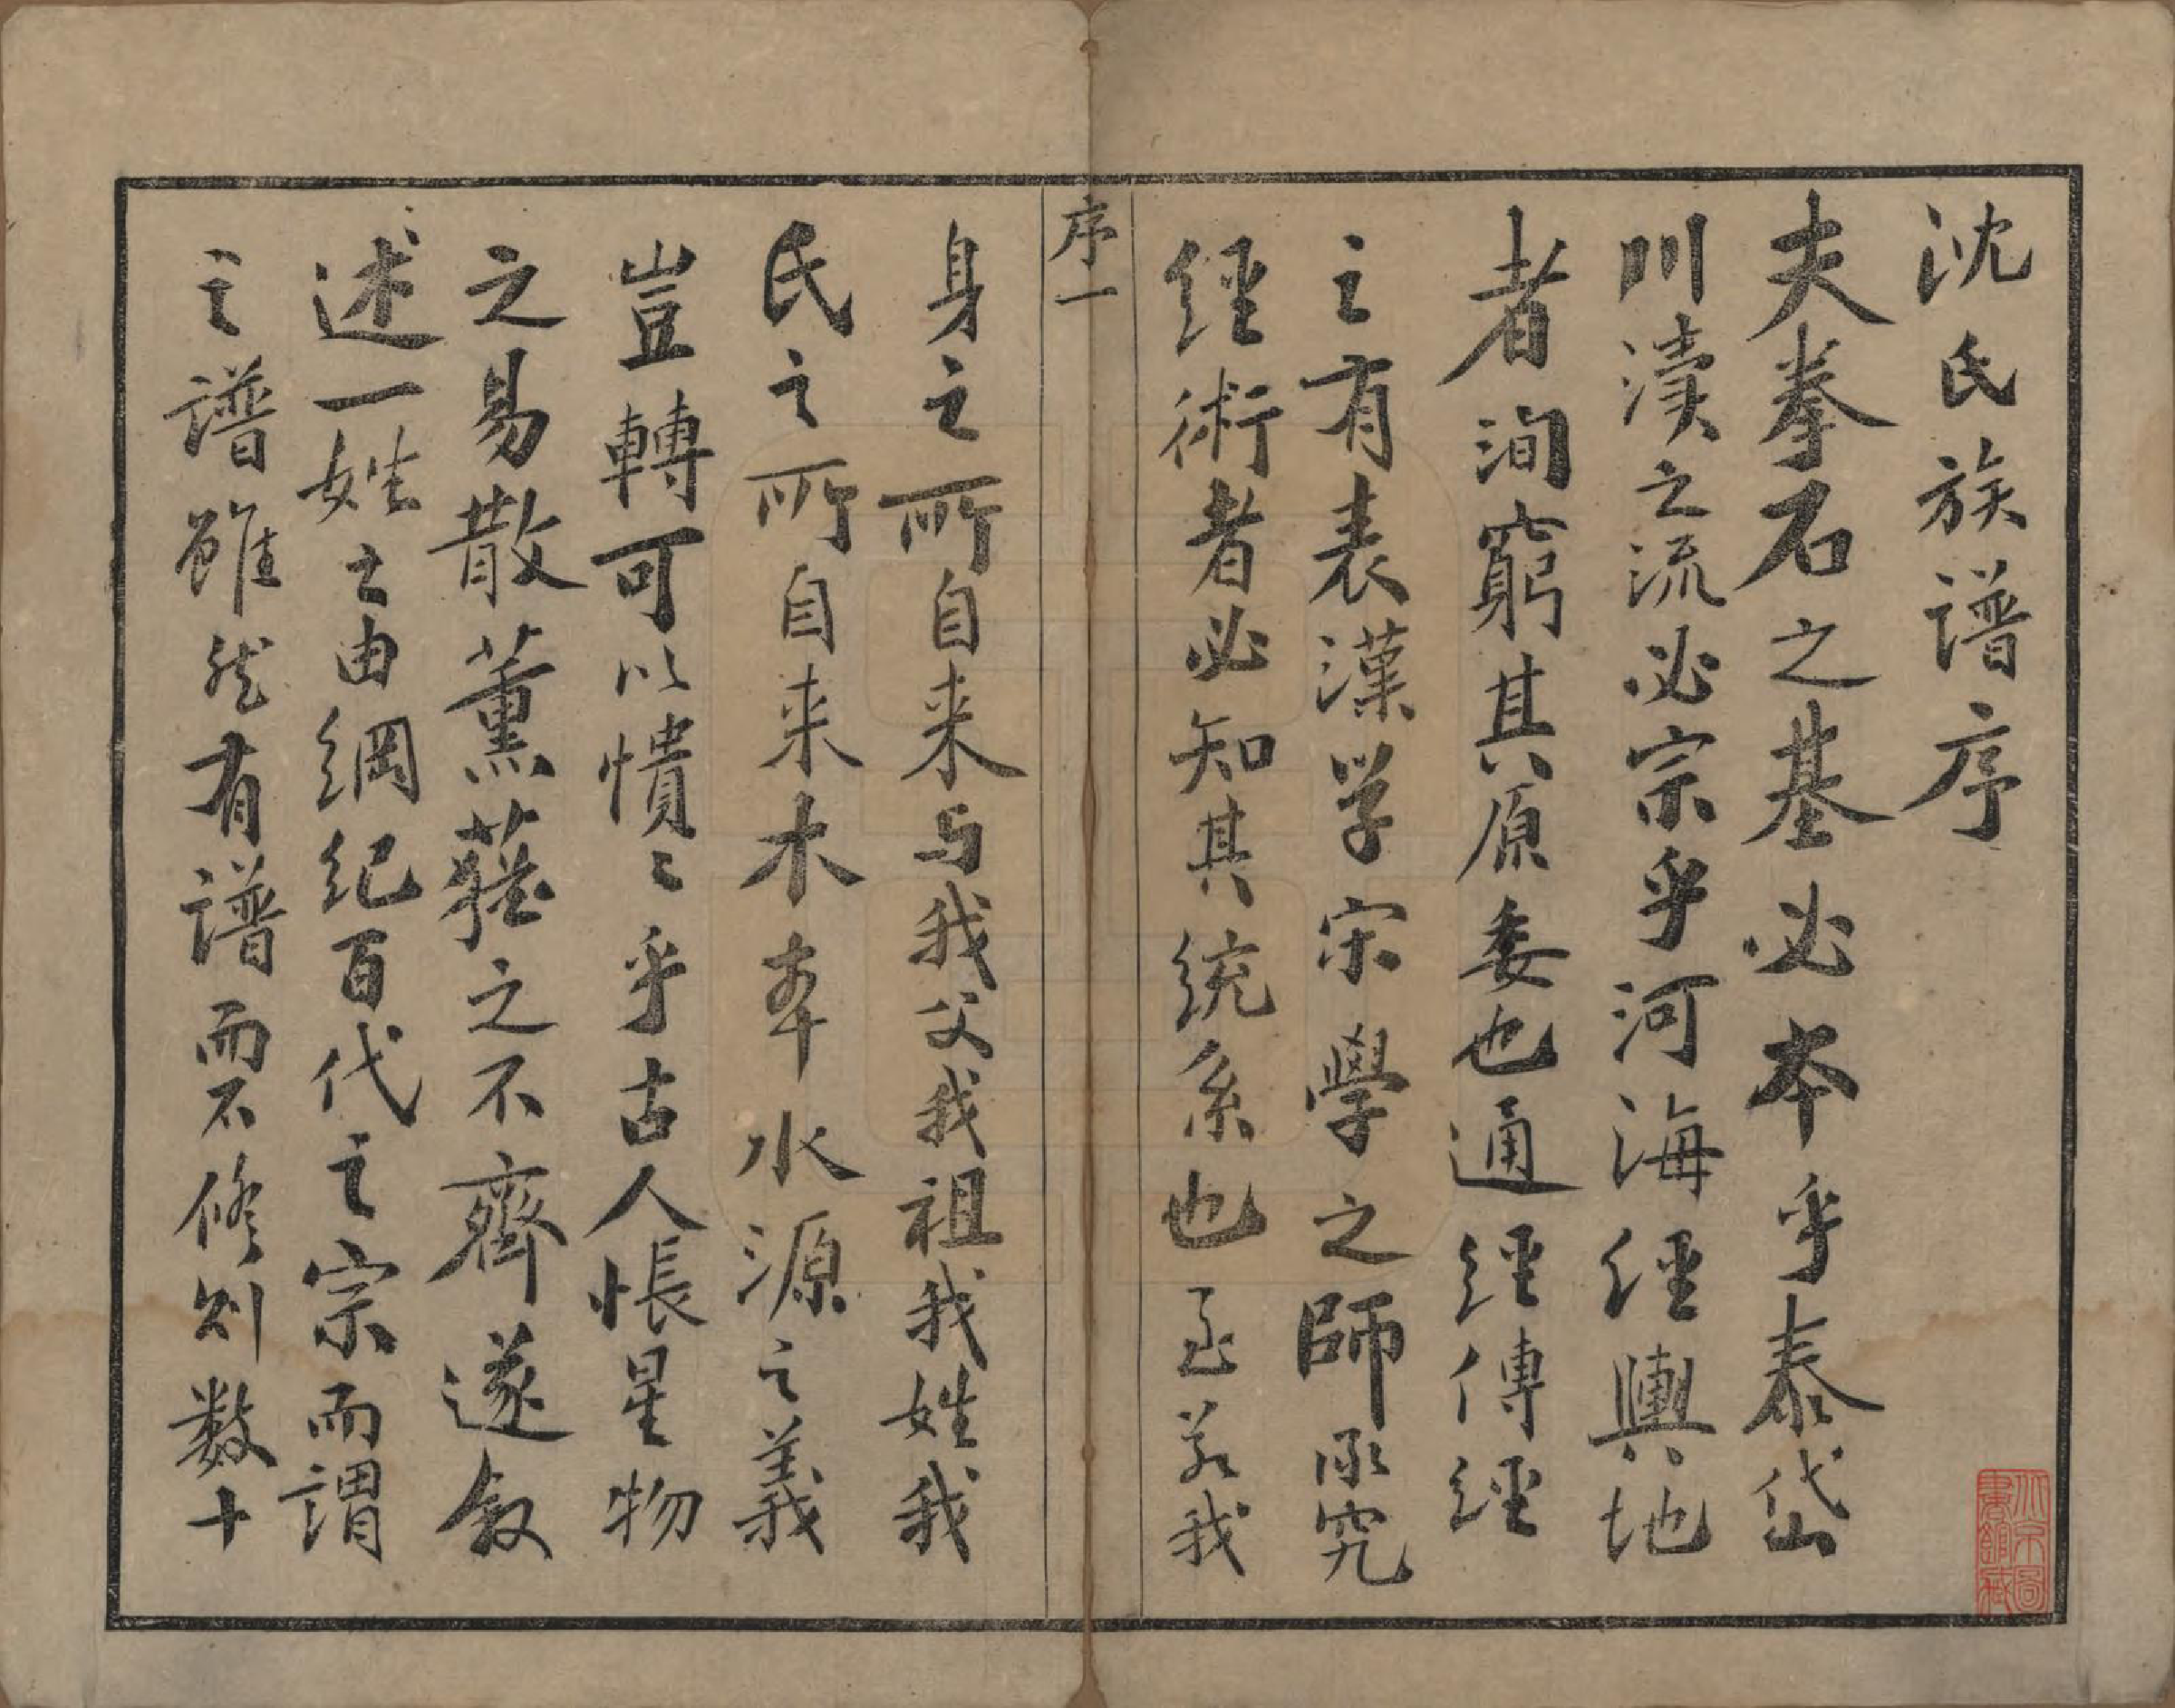 沈氏族譜序
夫拳石之基必本乎泰岱
川瀆之流必宗乎河海經輿地
者洵窮其原委也通經傳經
之有表漢学宋學之師承究
經術者必知其統系也至若我
序一
身之所自来与我父我祖我姓我
氏之所自来木本水源之義
豈轉可以憒〻乎古人悵星物
之易散薰蕕之不齊遂敘
述一姓之由綱纪百代之宗而謂
之譜雖然有譜而不修則数十
北京圖書館藏